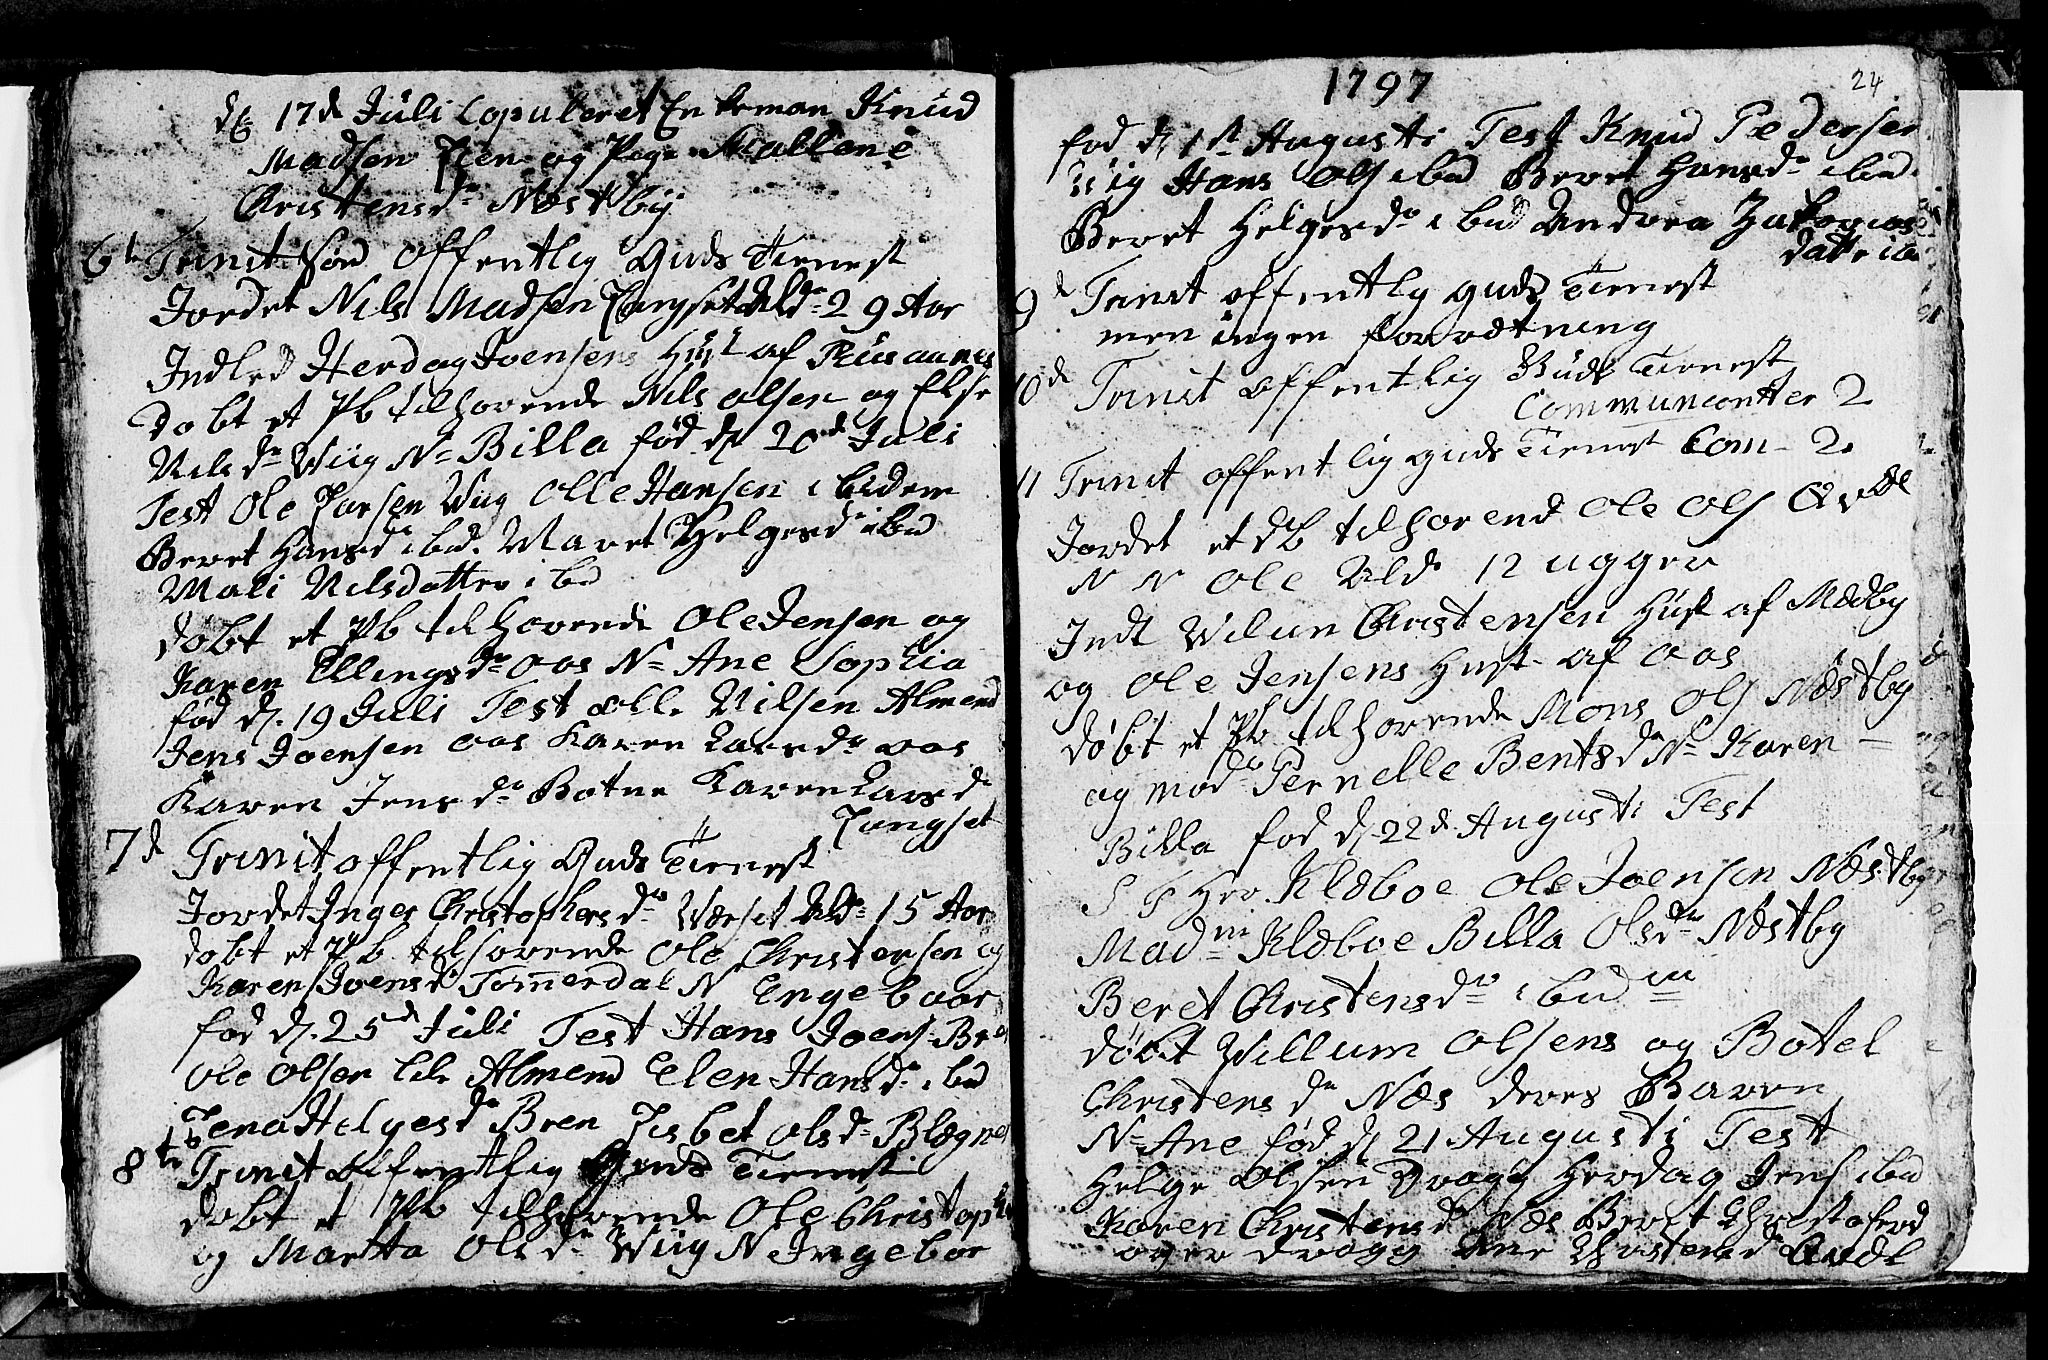 d. 17d Juli Copuleret Enkeman Knud
Madsen og Pige Mallene
Christensdr Næstby
6te Trinit Sønd offentlig Guds Tienest
Jordet Nils Madsen Langset Ald. 29 Aar
Indled Herdag Joensens Hust af
Døbt et Pb tilhørende Nils Olsen og Else
Nilsdr Wiig N= Billa fød d. 20d Juli
Test Ole Larsen Wiig Olle Hansen ibidem
Beret Hansdr ibid. Maret Helgesdr ibid
Mali Nilsdatter ibd
døbt et Pb tilhørende Ole Jensen og
Karen Ellingsdr Aas N= Ane Sophia
fød d. 19 Juli Test Olle Nilsen Almend
Jens Joensen Aas Karen Larsdr Aas
Karen Jensdr Botne Karen Larsdr
Langset
7d Trinit offentlig Guds Tienest
Jordet Inger Christophersdr Værset Ald. 15 Aar
døbt et Pb tilhørende Ole Christensen og
Karen Joensdr Tømmerdal N Engebaar
fød d. 25d Juli Test Hans Joens. Bren
Ole Olsen Lile Almend Elen Hansdr ibid
Lena Helgesdr Bren Lisbet Olsdr
8te Trinit offentlig Guds Tienest
døbt et Pb tilhørende Ole Christoph
og Martta Olsdr Wiig N Ingebor
1797
24
fød d. 1st Augusti Test Knud Pedersen
Wiig Hans Ols ibid Beret Hansdr ibid.
Beret Helgesdr ibid Andrea Zakarias
datter ib
9d Trinit offentlig Guds Tienest
men ingen forrætning
10d Trinit offentlig Guds Tienest
Communicanter 2
11 Trinit offentlig Guds Tienest Com- 2
Jordet et db tilhørend Ole Ols
N N Ole Ald. 12 ugger
Indl Wilum Christensen Hust af Mædby
og Ole Jensens Hust. af Aas
døbt et Pb tilhørende Mons Ols Næstby
og mod Pernelle Bentsdr N= Karen
Billa fød d. 22d. Augusti Test
S T Hr. Klæboe Ole Joensen Næstby
Madm Klæboe Billa Olsdr Næstby
Beret Christensdr ibidm
døbt Willum Olsens og Botel
Christensdr Næs deres Baren
N= Ane fød d. 21 Augusti Test
Helge Olsen Dragg Herdag Jens ibid
Karen Christensdr Næs Beret Christofersd
Dragg Ane Christensdr